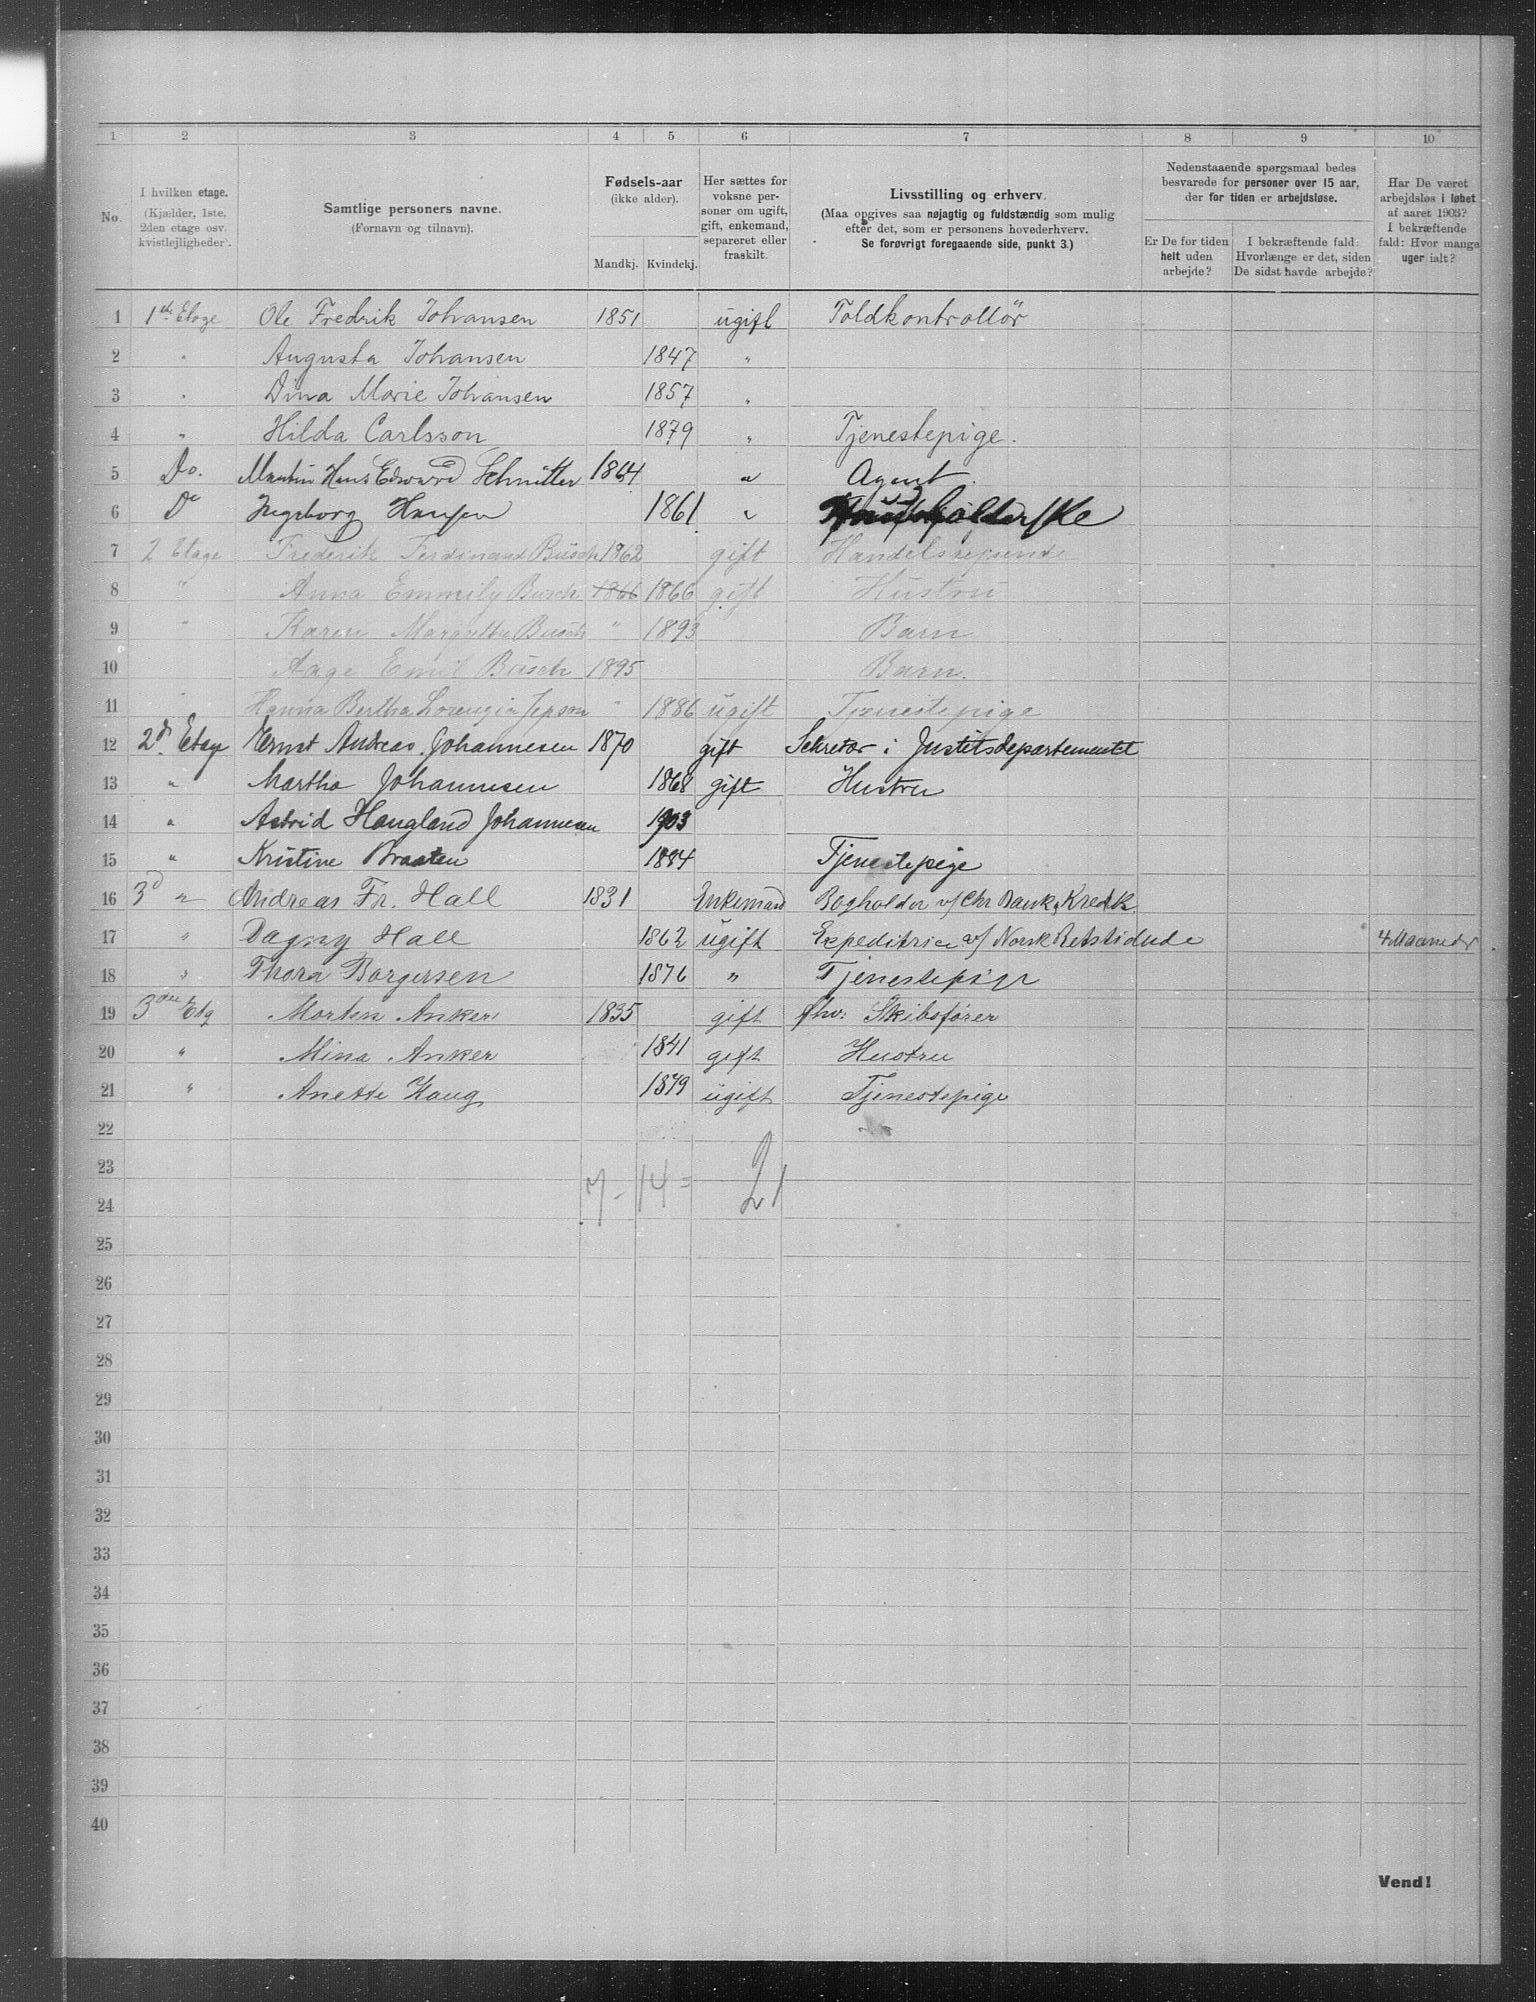 1 2 3 4 5 6 7 8 9 10
No.
I hvilken etage.
(Kjælder, 1ste,
2den etage osv.
kvistlejligheder).
Samtlige personers navne.
(Fornavn og tilnavn).
Fødsels-aar
(ikke alder).
Mandkj. Kvindekj.
Her sættes for
voksne per-
soner om ugift,
gift, enkemand,
separeret eller
fraskilt.
Livsstilling og erhverv.
(Maa opgives saa nøjagtig og fuldstændig som mulig
efter det, som er personens hovederhverv.
Se forøvrigt foregaaende side, punkt 3.)
Nedenstaaende spørgsmaal bedes
besvarede for personer over 15 aar,
der for tiden er arbejdsløse.
Er De for tiden
helt uden
arbejde?
I bekræftende fald:
Hvorlænge er det, siden
De sidst havde arbejde?
Har De været
arbejdsløs i løbet
af aaret 1903?
I bekræftende
fald: Hvor mange
uger ialt?
1 1ste Etage Ole Fredrik Johansen 1851 ugift Toldkontrollör
2 " Augusta Johansen 1847 "
3 " Dina Marie Johansen 1857 "
4 " Hilda Carlsson 1879 " Tjenestepige.
5 Do. Martin Hans Edvard Schnitler 1864 " Agent.
6 Do Ingeborg Hansen 1861 "
7 2 Etage Frederik Ferdinand Büsch 1862 gift Handelsrejsende
8 " Anna Emmily Busch 1866 1866 gift Hustru
9 " Karen Margrethe Busch " 1893 Barn
10 Aage Emil Büsch 1895 Barn.
11 " Hanna Bertha Lorengia Jepson " 1886 ugift Tjenestepige
12 2d Etage Ernst Andreas Johannesen 1870 gift Sekretær i Justitsdepartementet
13 " Martha Johannesen 1868 gift Hustru
14 " Astrid Haugland Johannesen 1903
15 " Kristine Braaten 1884 Tjenestepige
16 3d " Andreas Fr. Hall 1831 Enkemand Bogholder v/ Chr Bank & Kredk
17 " Dagny Hall 1862 ugift Expeditrice v/ Norsk Retstidende 4 Maaneder
18 " Thora Borgersen 1876 " Tjenestepige
19 3die Etg Morten Anker 1835 gift fhv: Skibsfører
20 " Mina Anker 1841 gift Hustru
21 " Anette Haug 1879 ugift Tjenestepige
22
23
7 - 14 = 21
24
25
26
27
28
29
30
31
32
33
34
35
36
37
38
39
40
Vend!